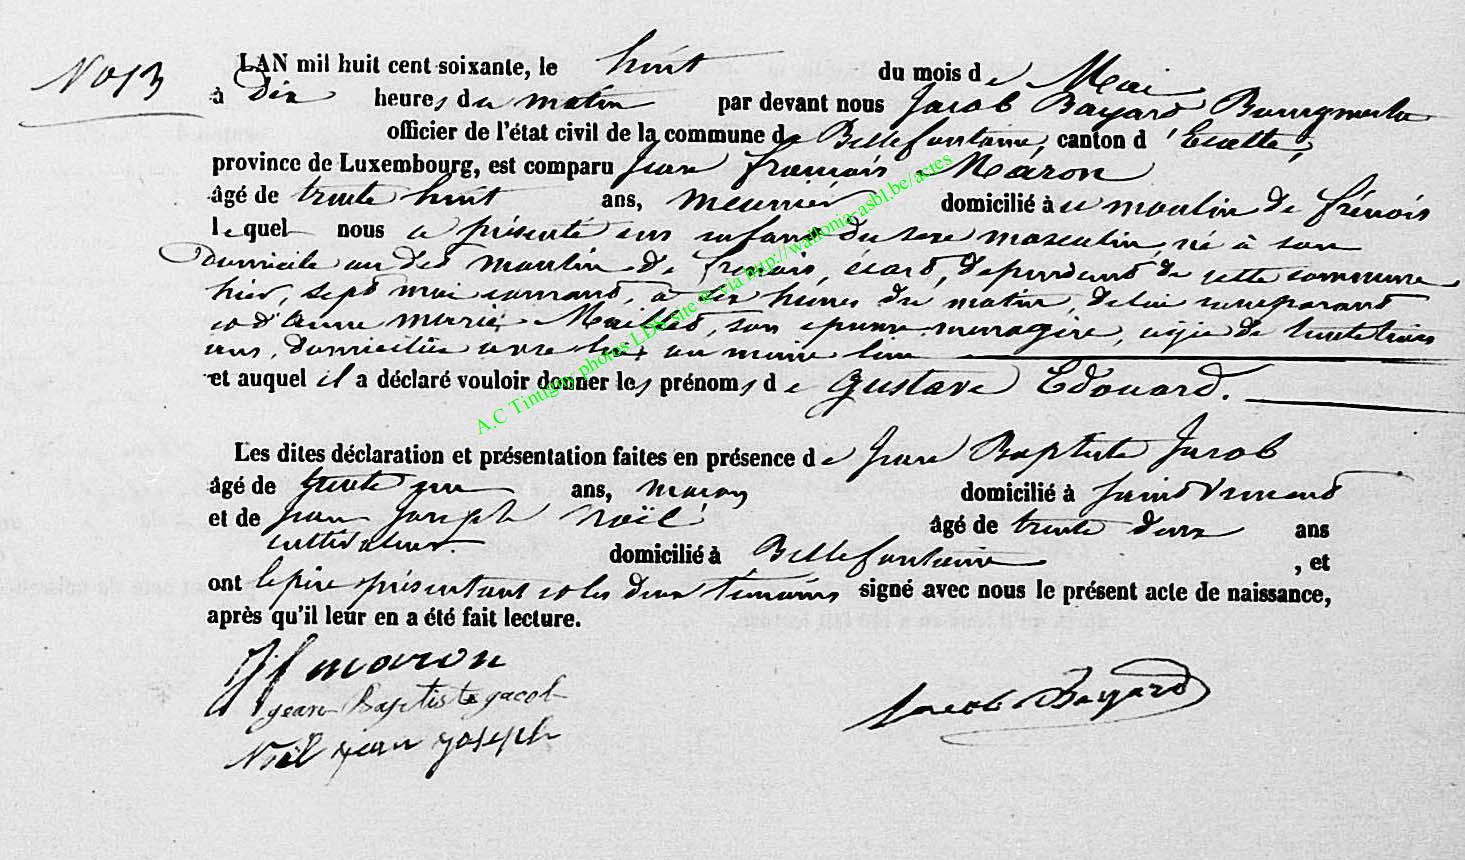 No 13
L'AN mil huit cent soixante, le huit du mois de Mai
à Dix heures du matin par devant nous Jacob Bayard Bourgmestre
officier de l'état civil de la commune de Bellefontaine, canton d'Etalle,
province de Luxembourg, est comparu Jean François Maron
âgé de trente huit ans, meunier domicilié à moulin de frénois
lequel nous a présenté un enfant du sexe masculin, né à son
Domicile au dit moulin de frenois, écart, dépendant de cette commune
hier, sept mai courant, à six heures du matin, de lui comparant
et d'Anne Marie Maillet, son épouse menagère, agée de trente trois
ans, domiciliée avec lui au même lieu
et auquel il a déclaré vouloir donner les prénoms de Gustave Edouard.
Les dites déclaration et présentation faites en présence de Jean Baptiste Jacob
âgé de trente un ans, maçon domicilié à Saint Vincent
et de Jean Joseph Noël âgé de trente deux ans
cultivateur. domicilié à Bellefontaine, et
ont le père présentant et les deux témoins signé avec nous le présent acte de naissance,
après qu'il leur en a été fait lecture.
Jf maron
jean Baptiste jacob
Noël jean joseph
Jacob Bayard
A.C Tintigny photos LDS site & via http://wallonia-asbl.be/actes